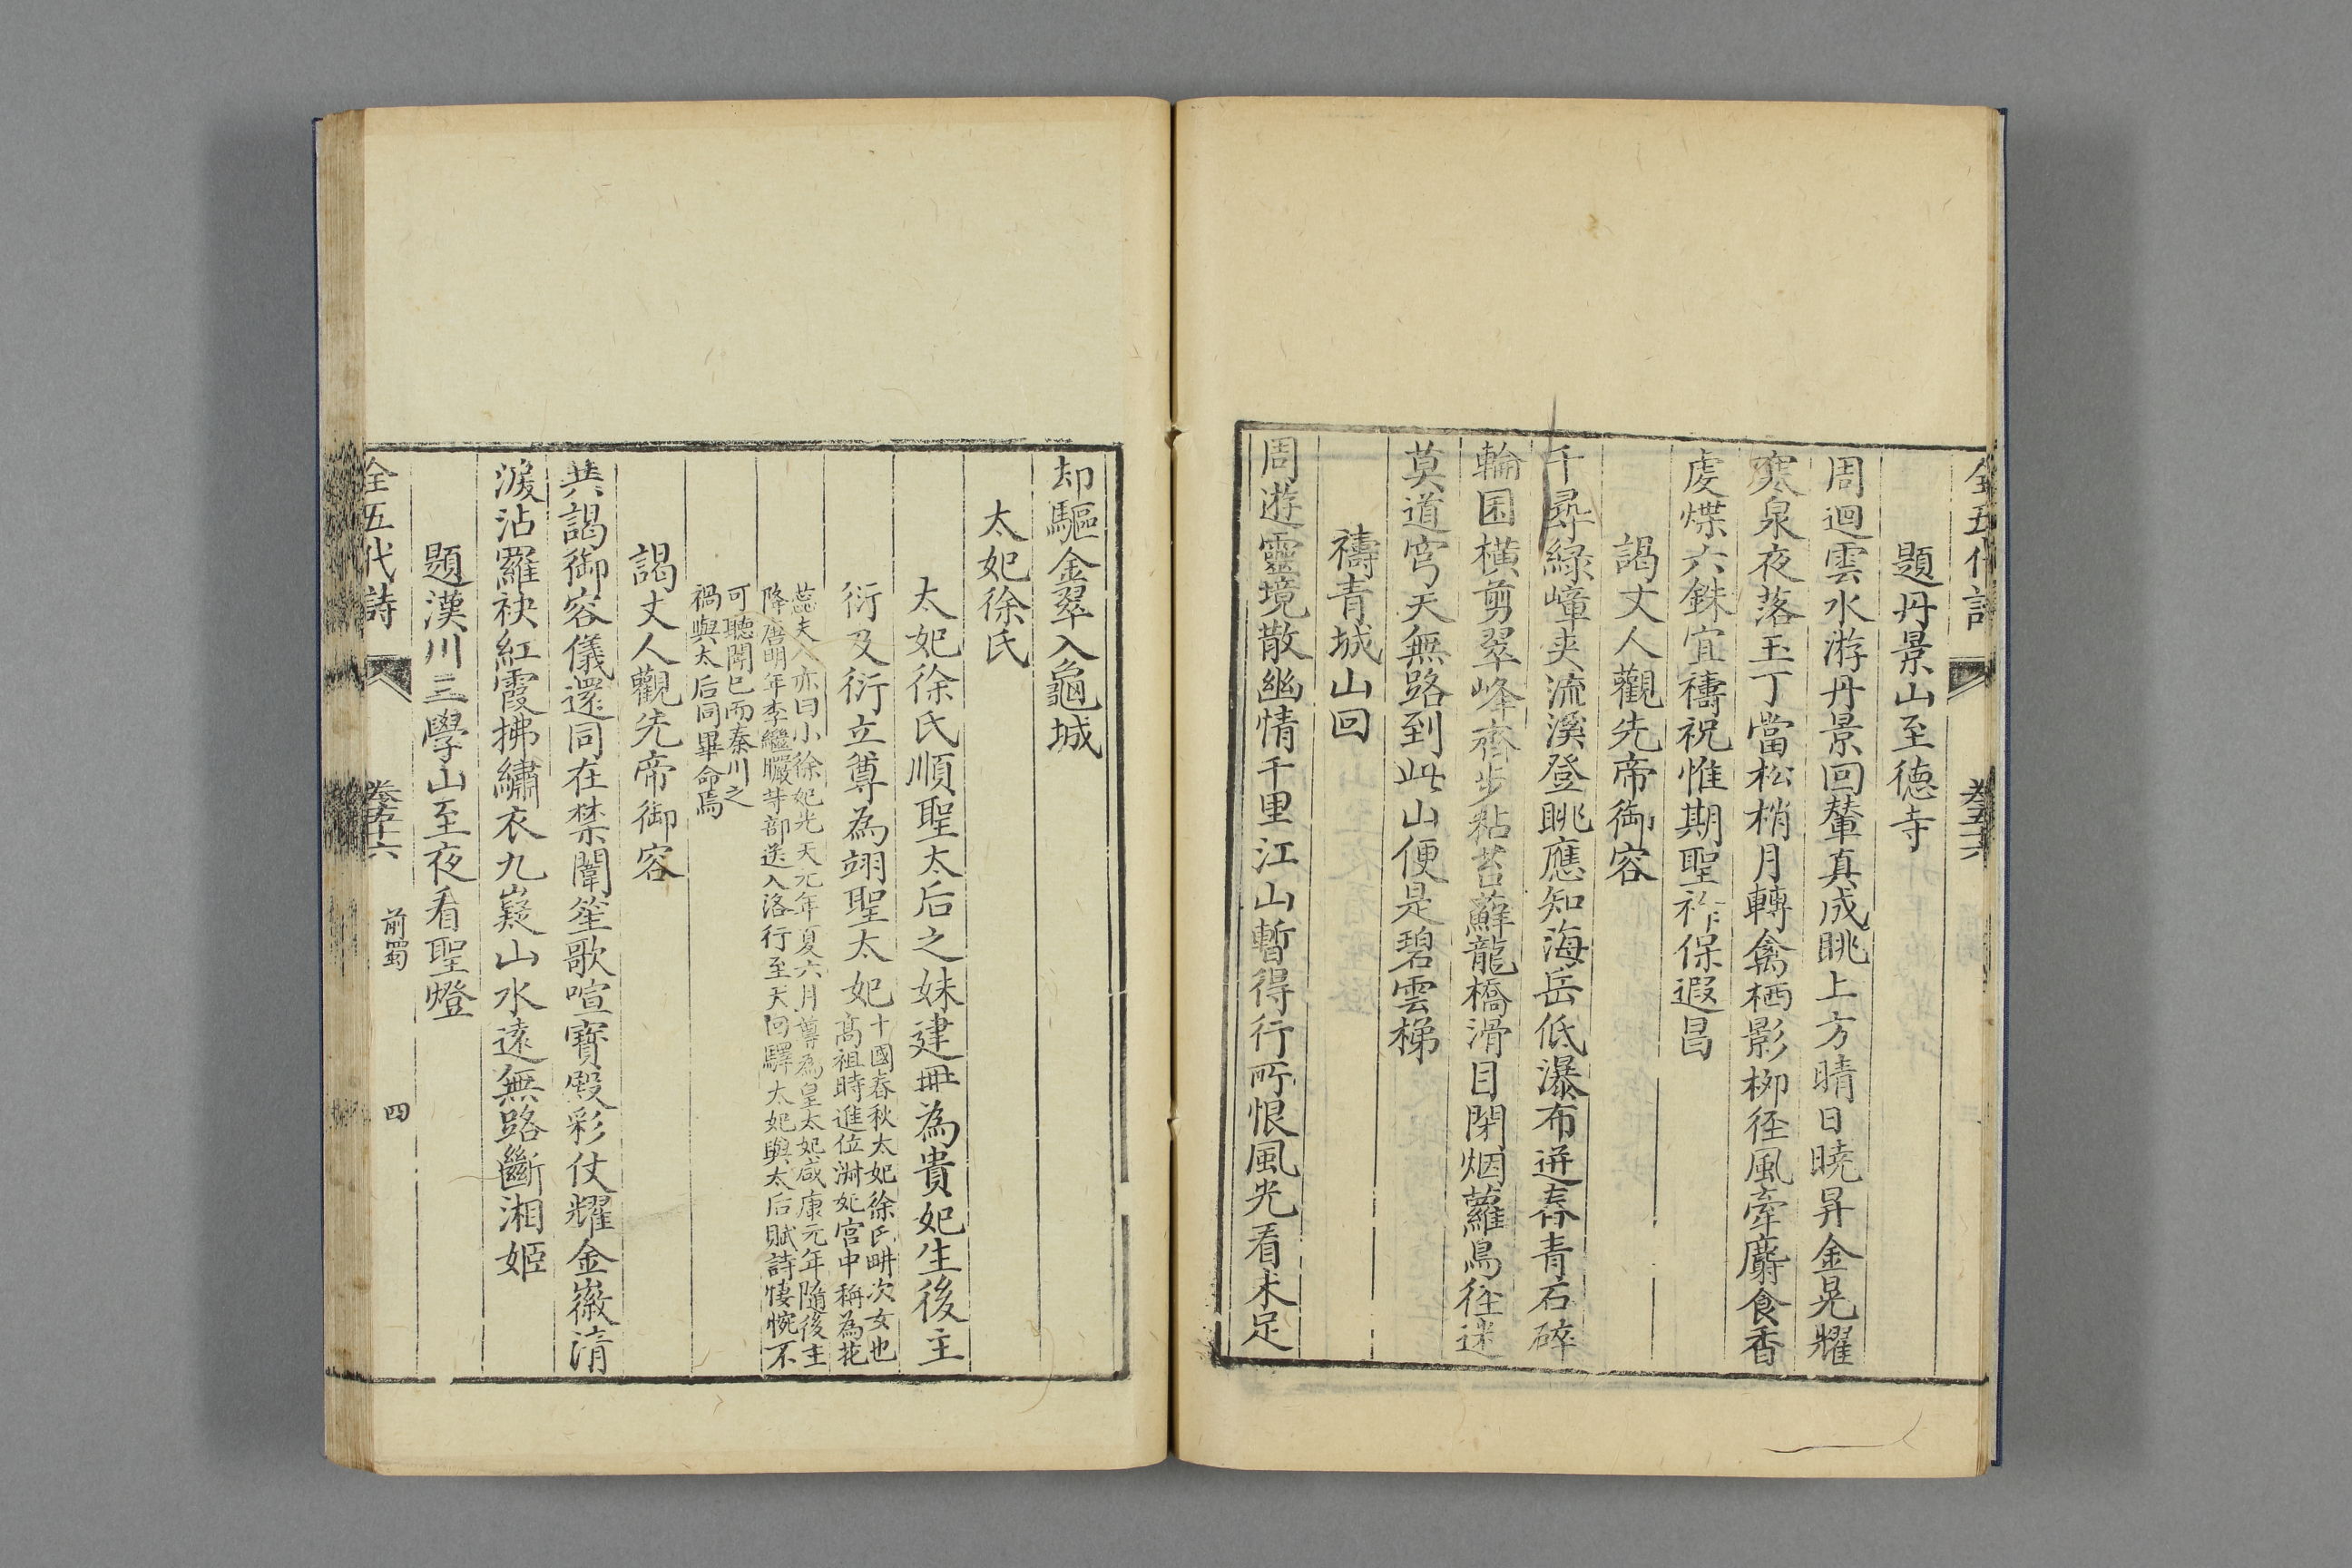 全五代詩
題丹景山至德寺
周迴雲水游丹景回輦真成眺上方晴日曉昇金晃耀
寒泉夜落玉丁當松梢月轉禽栖影柳徑風牽麝食香
虔爇六銖宜禱祝惟期聖祚保遐昌
謁丈人觀先帝御容
千尋綠嶂夾流溪登眺應知海岳低瀑布迸舂青石碎
輪囷橫剪翠峰齊步粘苔蘚龍橋滑目閉烟蘿鳥徑迷
莫道穹天無路到此山便是碧雲梯
禱青城山回
周遊靈境散幽情千里江山暫得行所恨風光看未足
却驅金翠入龜城
太妃徐氏
太妃徐氏順聖太后之妹建冊為貴妃生後主
衍及衍立尊為翊聖太妃十國春秋太妃徐氏畊次女也
高祖時進位淑妃宮中稱為花
蕊夫人亦曰小徐妃光天元年夏六月尊為皇太妃咸康元年隨後主
降唐明年李繼曮等部送入洛行至天回驛太妃與太后賦詩悽惋不
可聽聞已而秦川之
禍與太后同畢命焉
謁丈人觀先帝御容
共謁御容儀還同在禁闈笙歌喧寶殿彩仗耀金徽清
淚沾羅袂紅霞拂繡衣九嶷山水遠無路斷湘姬
題漢川三學山至夜看聖燈
全五代詩 卷五十六 前蜀 四